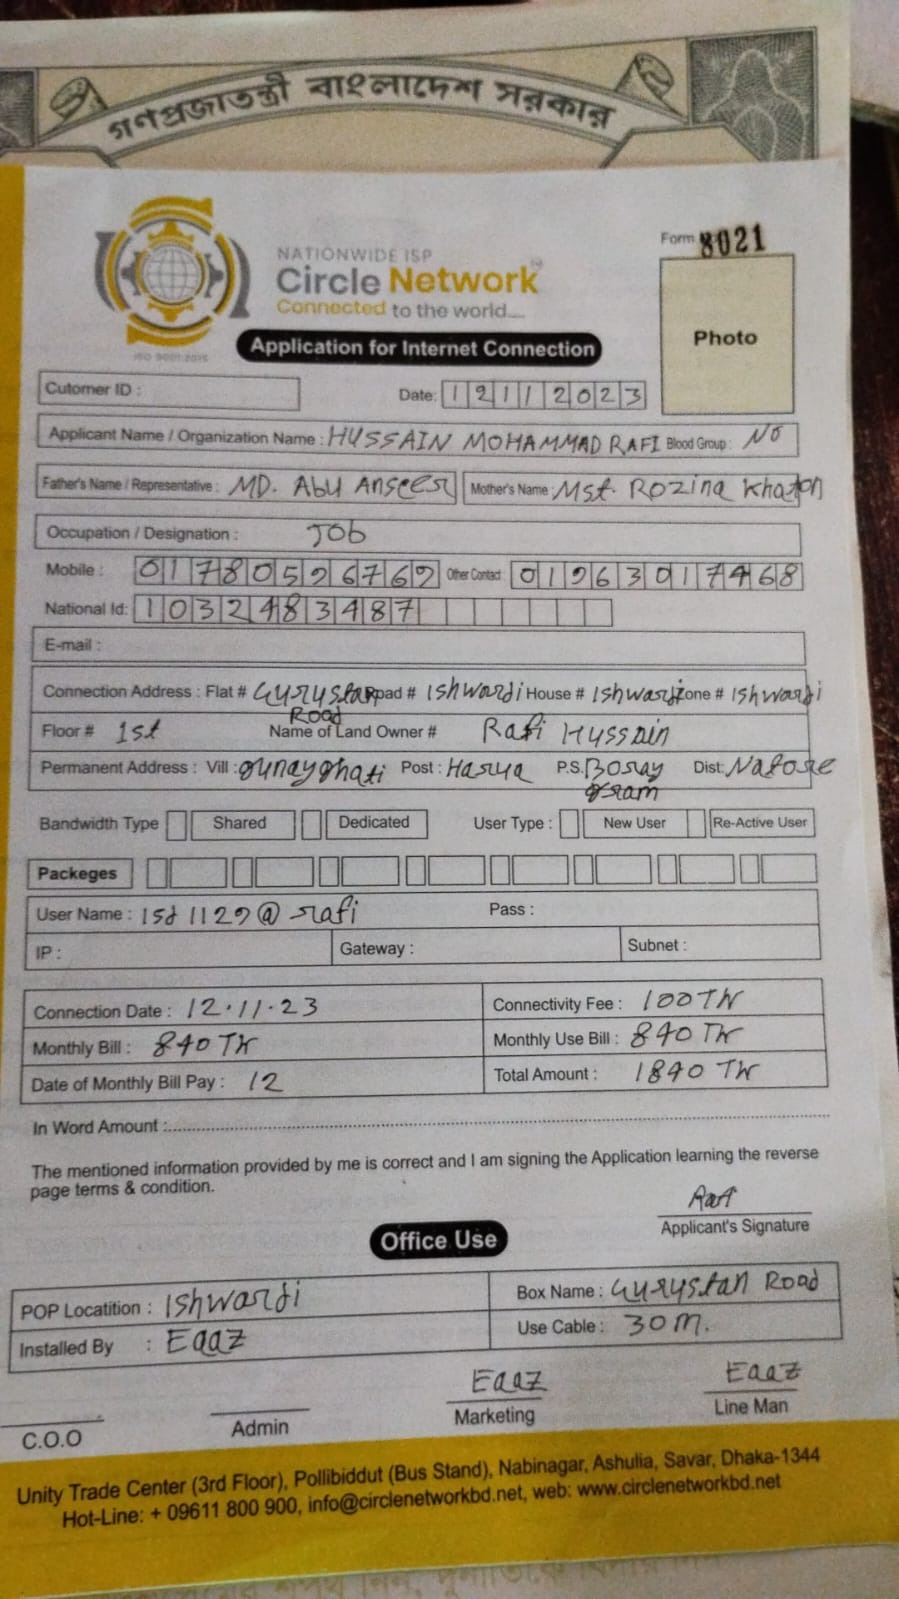 গণপ্রজাতন্ত্রী বাংলাদেশ সরকার
Form 8021
NATIONWIDE ISP
Circle Network
Connected to the world....
ISO 9001:2015
Application for Internet Connection
Photo
Cutomer ID :
Date: 12112023
Applicant Name / Organization Name : HUSSAIN MOHAMMAD RAFI Blood Group : NO
Father's Name / Representative : MD. Abu Anseer Mother's Name : Mst. Rozina Khaton
Occupation / Designation : Job
Mobile : 01780526769 Other Contact : 01963017468
National Id: 1032483487
E-mail :
Connection Address : Flat # Gurustan Road Road # Ishwardi House # Ishwardi Zone # Ishwardi
Floor # 1st Name of Land Owner # Rafi Hussain
Permanent Address : Vill : gunayghati Post : Harua P.S. Boray gram Dist: Natore
Bandwidth Type Shared Dedicated User Type : New User Re-Active User
Packeges
User Name : isd 1129@rafi Pass :
IP : Gateway : Subnet :
Connection Date : 12.11.23 Connectivity Fee : 100 TK
Monthly Bill : 840 TK Monthly Use Bill : 840 TK
Date of Monthly Bill Pay : 12 Total Amount : 1840 TK
In Word Amount :
The mentioned information provided by me is correct and I am signing the Application learning the reverse
page terms & condition.
Rafi
Applicant's Signature
Office Use
POP Locatition : Ishwardi Box Name : Gurustan Road
Installed By : Eaaz Use Cable : 30 m.
Eaaz Eaaz
C.O.O Admin Marketing Line Man
Unity Trade Center (3rd Floor), Pollibiddut (Bus Stand), Nabinagar, Ashulia, Savar, Dhaka-1344
Hot-Line: + 09611 800 900, info@circlenetworkbd.net, web: www.circlenetworkbd.net